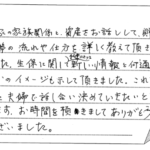 の家族関係と、資産をお話しして、
の流れや仕分を詳しく教えて頂き
た。生保に関し新しい情報と何通
のイメージも示して頂きました。これ
夫婦で話し合い決めていきたいと
す。お時間を頂きましてありがとう
ございました。